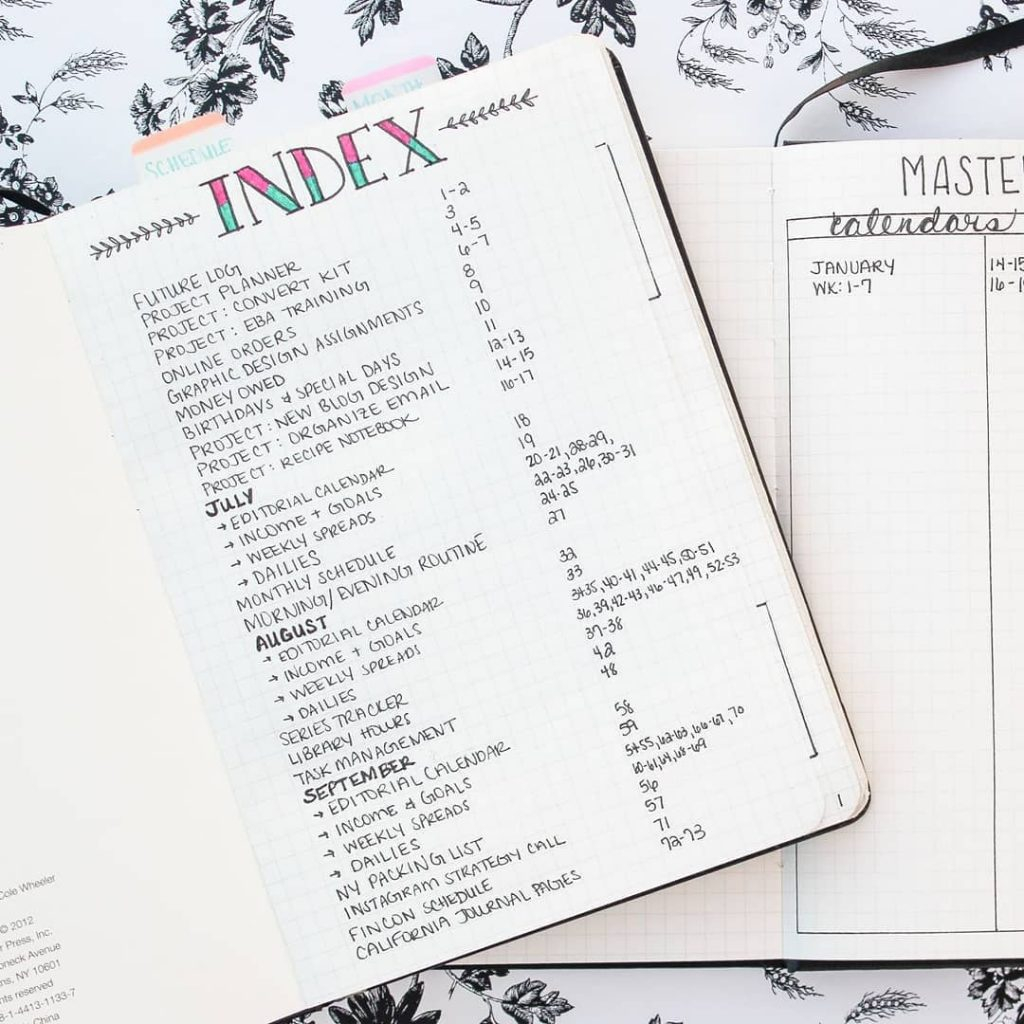 SCHEDULE
MONTH
INDEX
FUTURE LOG 1-2
PROJECT PLANNER 3
PROJECT: CONVERT KIT 4-5
PROJECT: EBA TRAINING 6-7
ONLINE ORDERS 8
GRAPHIC DESIGN ASSIGNMENTS 9
MONEY OWED 10
BIRTHDAYS & SPECIAL DAYS 11
PROJECT: NEW BLOG DESIGN 12-13
PROJECT: ORGANIZE EMAIL 14-15
PROJECT: RECIPE NOTEBOOK 16-17
JULY
→ EDITORIAL CALENDAR 18
→ INCOME + GOALS 19
→ WEEKLY SPREADS 20-21, 28-29,
→ DAILIES 22-23, 26, 30-31
MONTHLY SCHEDULE 24-25
MORNING/EVENING ROUTINE 27
AUGUST
→ EDITORIAL CALENDAR 32
→ INCOME + GOALS 33
→ WEEKLY SPREADS 34-35, 40-41, 44-45, 50-51
→ DAILIES 36, 39, 42-43, 46-47, 49, 52-53
SERIES TRACKER 37-38
LIBRARY HOURS 42
TASK MANAGEMENT 48
SEPTEMBER
→ EDITORIAL CALENDAR 58
→ INCOME & GOALS 59
→ WEEKLY SPREADS 54-55, 62-63, 66-67, 70
→ DAILIES 60-61, 64, 68-69
NY PACKING LIST 56
INSTAGRAM STRATEGY CALL 57
FINCON SCHEDULE 71
CALIFORNIA JOURNAL PAGES 72-73
1
MASTE
calendars
JANUARY 14-15
WK: 1-7 16-1
Cole Wheeler
© 2012
r Press, Inc.
oneck Avenue
ns, NY 10601
ghts reserved
8-1-4413-1133-7
China